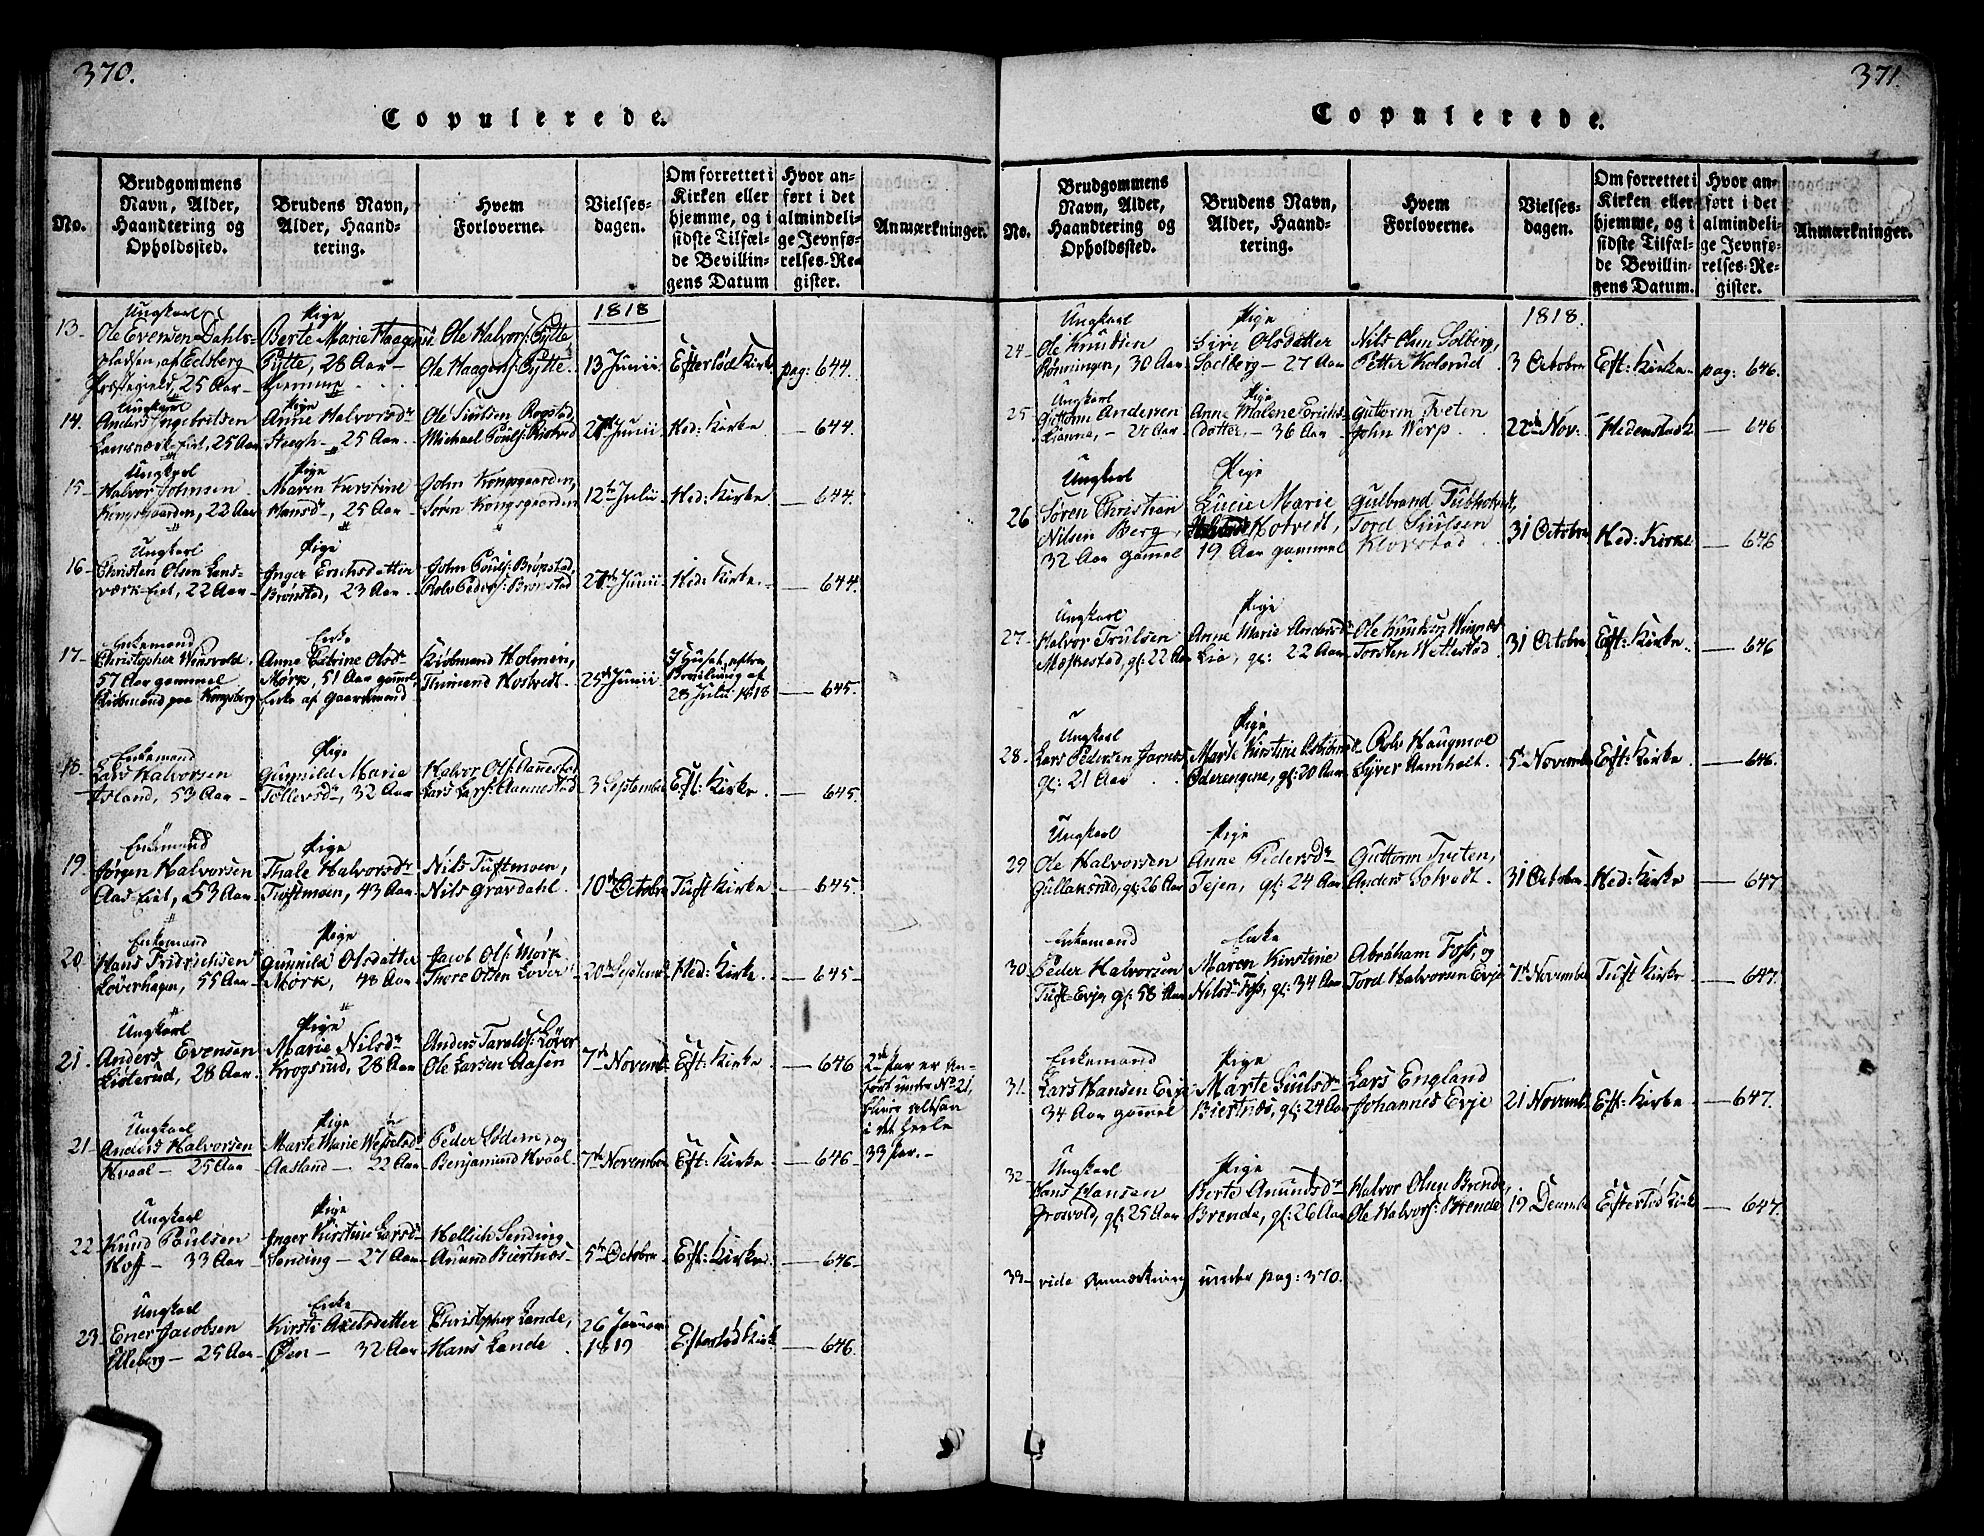 370.
Copulerede.
No.
Brudgommens
Navn, Alder,
Haandtering og
Opholdssted.
Brudens Navn,
Alder, Haand-
tering.
Hvem
Forloverne.
Vielses-
dagen.
Om forrettet i
Kirken eller
hjemme, og i
sidste Tilfæl-
de Bevillin-
gens Datum
Hvor an-
ført i det
almindeli-
ge Jevnfø-
relses-Re-
gister.
Anmærkninger.
1818
13-
Ungkarl
Ole Evensen Dahls-
af Edsberg
25 Aar-
Pige
Berte Marie Haagens
Pytte, 28 Aar-
hiemme
Ole Halvors: Pytte,
Ole Haagens: Pytte.
13 Junii
Efterlød Kirk.
pag: 644.
14.
Ungkarl
Anders Ingebretsen
Eiet, 25 Aar
Pige
Anne Halvorsdr
25 Aar.
Ole Rogstad,
Michael Pouls:
Junii
Hed: Kirke.
— 644.
15-
Ungkarl
Halvor Johnsen
Kongsgaarden, 22 Aar
Pige
Maren Kirstine
Hansdr, 25 Aar-
John Kongsgaarden,
Søren Kongsgaarden
12te Julii
Hed: Kirke.
— 644.
16-
Ungkarl
Christen Olsen Lans-
værk-Eiet, 22 Aar-
Pige
Inger Erichsdatter
Brønstad, 23 Aar.
John Pouls: Brønstad,
Rolv Peders: Brønstad
Junii
Hed: Kirke.
— 644.
17-
Enkemand
Christopher
57 Aar gammel
Kiøbmand paa Kongsberg
Enke
Anne Catrine Olsdr
Mørk, 51 Aar gamel,
Enke af Gaardmand
Kiøbmand Holmen,
Hostvedt.
25de Junii
I Huset, efter
Bevilning af
28 Julii 1818
— 645.
18.
Enkemand
Lars Halvorsen
Island, 53 Aar-
Pige
Gunnild Marie
Tollevsdr, 32 Aar
Halvor Ols: Aannestad
Lars Lars: Aannestad
3 September
Eft: Kirke.
— 645.
19.
Enkemand
Jørgen Halvorsen
Aas-Eiet, 53 Aar-
Pige
Thale Halvorsdr
Tuftmoen, 43 Aar
Nils Tuftmoen,
Nils Gravdahl.
10de Octobr
Tuft Kirke
— 645.
20
Enkemand
Hans Fridrichsen
Løverhagen, 55 Aar-
Pige
Gunnild Olsdatter
Mørk, 48 Aar
Jacob Ols: Mørk
Thore Olsen Løver
20de Septembr
Hed: Kirke.
— 645-
21.
Ungkarl
Anders Evensen
Listerud, 28 Aar.
Pige
Marie Nilsdr
Krogsrud, 28 Aar
Anders Taralds: Løver
Ole Larsen Aasen
7de Novemb
Eft: Kirke
— 646
2de Par er An-
ført under No 21,
altsaa
i det heele
33 Par.-
21-
Ungkarl
Anders Halvorsen
Kvaal - 25 Aar
Pige
Marte Marie
Aasland - 22 Aar
Peder Sødem, og
Benjamin Kvaal
7de November
Eft: Kirke.
— 646-
22
Ungkarl
Knud Poulsen
Hoff - 33 Aar
Pige
Inger Kirstine Larsdr
Sending - 27 Aar
Hellich Sending
Amund Biertnæs
5te Octobr
Eft: Kirke.
— 646-
23-
Ungkarl
Ener Jacobsen
Elleberg - 25 Aar-
Enke
Kirsti Axelsdatter
Øen - 32 Aar
Christopher Lande,
Hans Lande
26 Januar
1819
Efterlød Kirk
— 646.
371.
Copulerede.
No.
Brudgommens
Navn, Alder,
Haandtering og
Opholdssted.
Brudens Navn,
Alder, Haand-
tering.
Hvem
Forloverne.
Vielses-
dagen.
Om forrettet i
Kirken eller
hjemme, og i
sidste Tilfæl-
de Bevillin-
gens Datum.
Hvor an-
ført i det
almindeli-
ge Jevnfø-
relses-Re-
gister.
Anmærkninger.
1818.
24-
Ungkarl
Ole Knudsen
Rønningen, 30 Aar
Pige
Siri Olsdatter
Soelberg - 27 Aar
Nils Solberg,
Petter Kolsrud
3 Octobr
Eft: Kirke.
pag: 646.
25
Ungkarl
Guttorm Andersen
Aar
Pige
Anne Malene Erichs-
datter, - 36 Aar
Guttorm Tveten
John Werp.
22de Nov:
Hedenstad K
— 646
26
Ungkarl
Søren Christian
Nilsen Berg,
32 Aar gamel
Pige
Lucie Marie
Kotvedt,
19 Aar gammel
Gulbrand
Tord Siulsen
Klovstad
31 Octobr
Hed: Kirke
— 646
27-
Ungkarl
Halvor Trulsen
Møkestad, gl: 22 Aar
Pige
Anne Marie Andersdr
Lia, gl: 22 Aar
Ole Knutsen
Torsten Wettestad
31 Octobr
Eft: Kirke.
— 646
28-
Ungkarl
Lars Pedersen Jarnes
gl: 21 Aar
Pige
Marte Kirstine
Oderengene, gl: 20 Aar
Rolv Haugmoe
Syver Aamholt.
5te Novembr
Eft: Kirke.
— 646.
29
Ungkarl
Ole Halvorsen
Gullaksrud, gl: 26 Aar
Pige
Anne Pedersdr
Tejen, gl: 24 Aar
Guttorm Tveten,
Anders Solvedt.
31 Octobr
Hed: Kirke
— 647
30
Enkemand
Peder Halvorsen
Tuft-Evje, gl: 58 Aar
Enke
Maren Kirstine
Nilsdr Foss, gl: 34 Aar
Abraham Foss, og
Tord Halvorsen Evje
7de November
Tuft Kirke
— 647.
31.
Enkemand
Lars Hansen Evje
34 Aar gammel
Pige
Marte Siulsdr
Biertnæs, gl: 24 Aar
Lars England
Johannes Evje
21 Novemb
Eft: Kirke
— 647.
32-
Ungkarl
Hans Hansen
Grosvold, gl: 25 Aar
Pige
Berte Amundsdr
Brenda, gl: 26 Aar
Halvor Olsen Brenda,
Ole Halvors: Brenda
19 Decemb
Efterlød Kirk
— 647.
33-
vide Anmærkning under pag: 370.